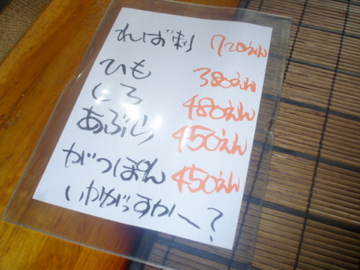 ればず刺 720えん
ひも 380えん
しろ 480えん
あぶり 450えん
がつぽん 450えん
いかがっすか〜?